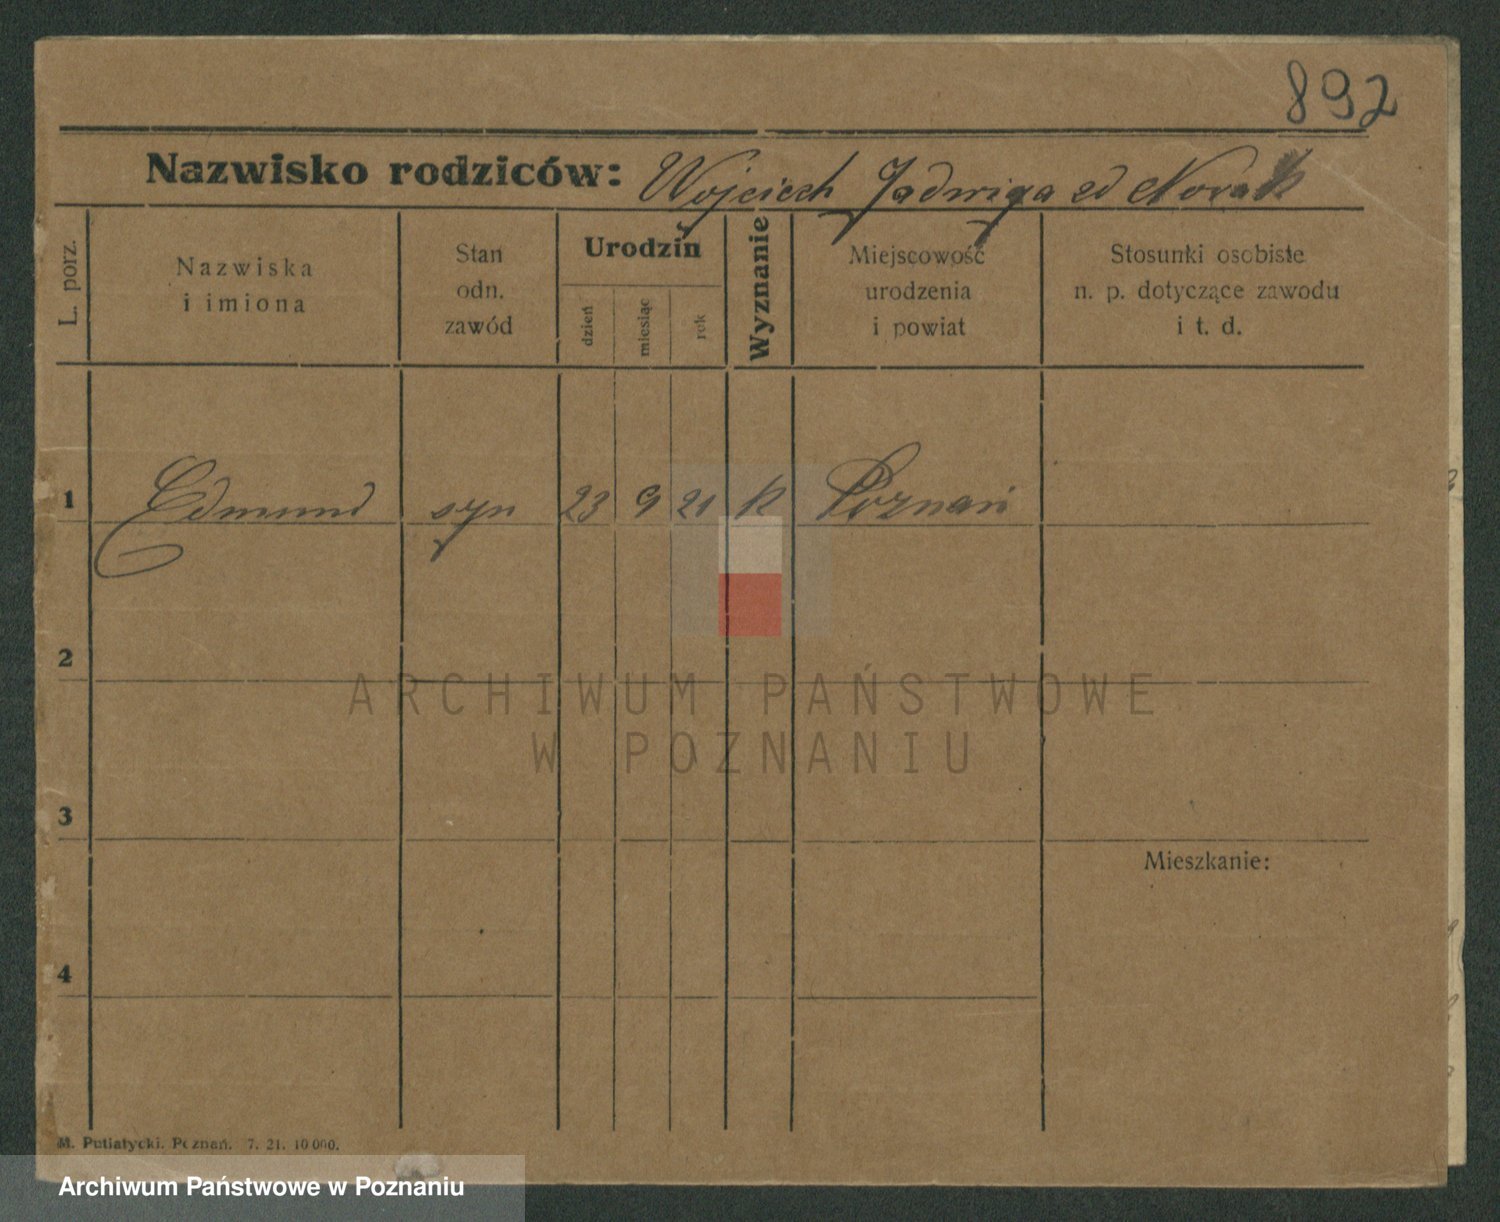 892
Nazwisko rodziców: Wojciech, Jadwiga zd Nowak
L. porz.
Nazwiska
i imiona
Stan
odn.
zawód
Urodzin
dzień
miesiąc
rok
Wyznanie
Miejscowość
urodzenia
i powiat
Stosunki osobiste
n. p. dotyczące zawodu
i t. d.
1 Edmund syn 23 9 21 k Poznań
2
3
Mieszkanie:
4
M. Putiatycki. Poznań. 7. 21. 10 000.
ARCHIWUM PAŃSTWOWE
W POZNANIU
Archiwum Państwowe w Poznaniu